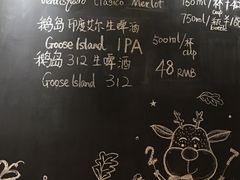 Clasico Merlot 150ml/杯
cup
750ml/瓶
鹅岛印度艾尔生啤酒
Goose Island IPA 500ml/杯
cup
鹅岛 312 生啤酒 48 RMB
Goose Island 312